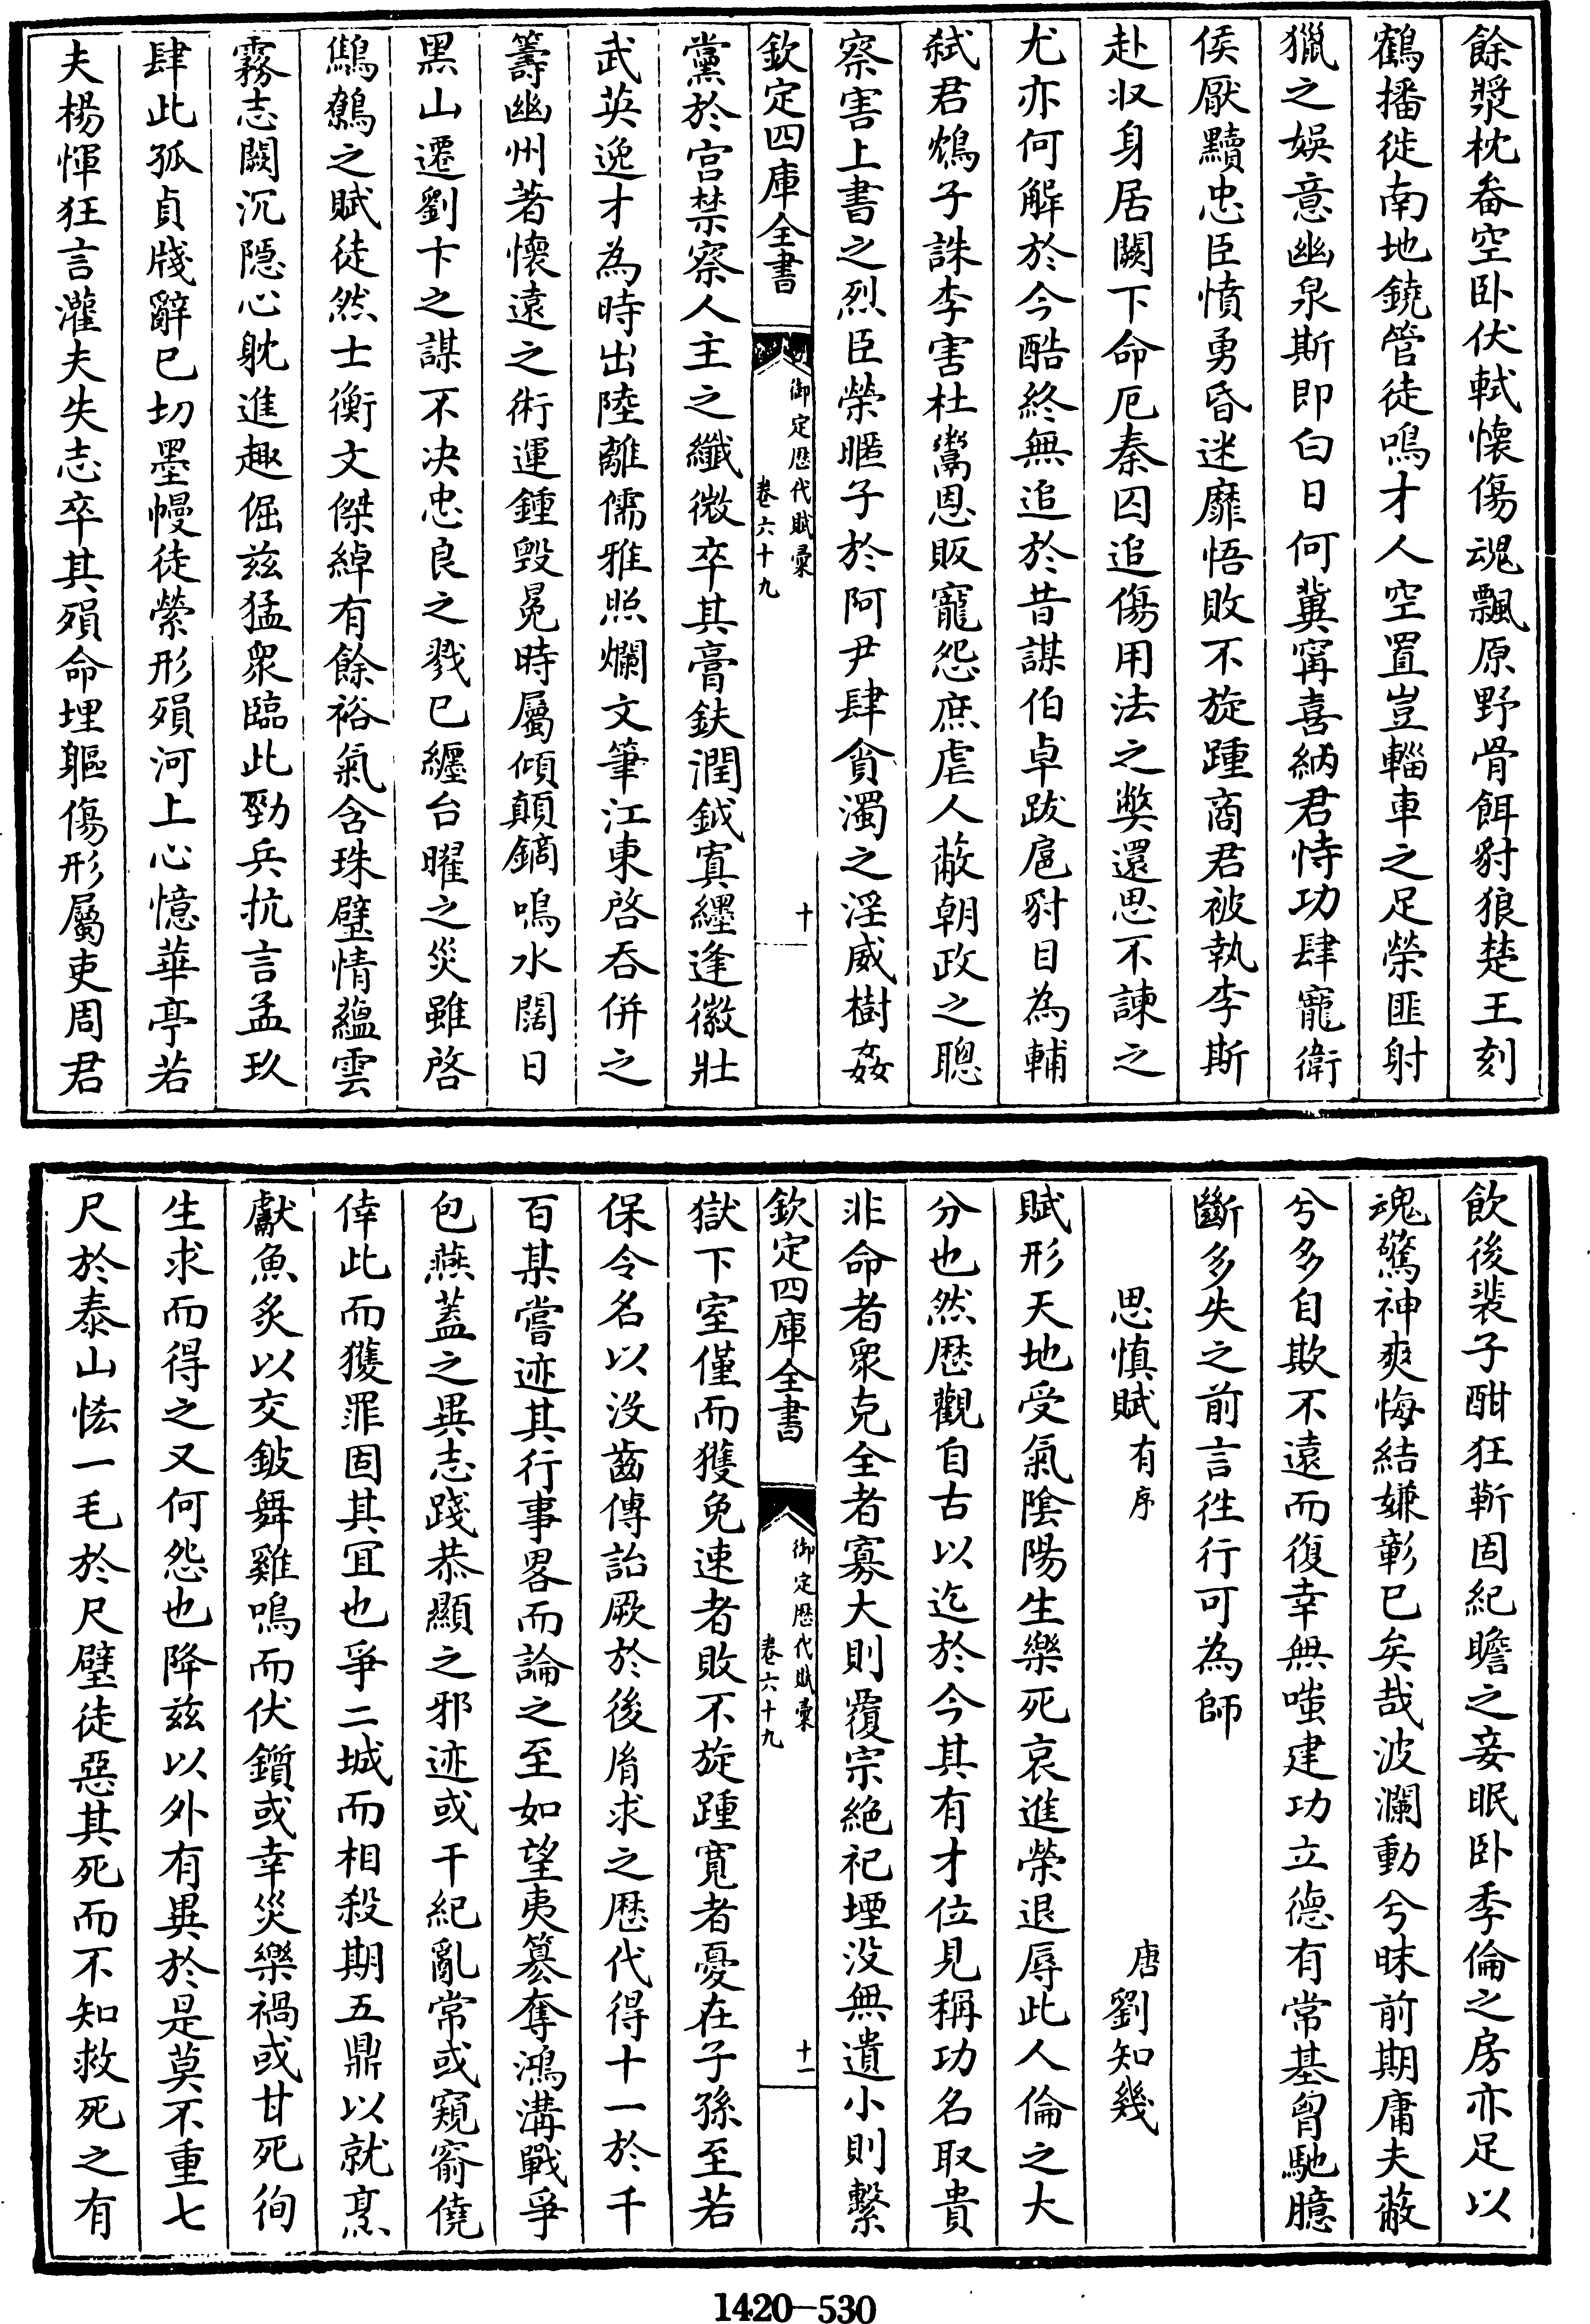 餘漿枕畚空卧伏軾懷傷魂飄原野骨餌豺狼楚王刻
鶴播徙南地鐃管徒鳴才人空置豈輜車之足榮匪射
獵之娯意幽泉斯即白日何冀甯喜納君恃功肆寵衛
侯厭黷忠臣憤勇昏迷靡悟敗不旋踵商君被執李斯
赴收身居闕下命厄秦囚追傷用法之獘還思不諫之
尤亦何解於今酷終無追於昔謀伯卓跋扈豺目為輔
弑君鴆子誅李害杜鬻恩販寵怨庶虐人蔽朝政之聰
察害上書之烈臣榮暱子於阿尹肆貪濁之淫威樹姦
欽定四庫全書 御定歴代賦彙 卷六十九 十
黨於宫禁察人主之纎微卒其膏鈇潤鉞寘纆逢徽壯
武英逸才為時出陸離儒雅照爛文筆江東啓吞併之
籌幽州著懷遠之術運鍾毁冕時屬傾顛鏑鳴水闊日
黑山遷劉卞之謀不决忠良之戮已纏台曜之災雖啓
鷦鷯之賦徒然士衡文傑綽有餘裕氣含珠璧情蘊雲
霧志闕沉隠心躭進趣倔兹猛衆臨此勁兵抗言孟玖
肆此孤貞牋辭已切墨幔徒縈形殞河上心憶華亭若
夫楊惲狂言灌夫失志卒其殞命埋軀傷形屬吏周君
飲後裴子酣狂斬固紀瞻之妾眠卧季倫之房亦足以
魂驚神爽悔結嫌彰已矣哉波瀾動兮昧前期庸夫蔽
兮多自欺不遠而復幸無嗤建功立德有常基胷馳臆
斷多失之前言徃行可為師
思慎賦有序 唐劉知幾
賦形天地受氣陰陽生樂死哀進榮退辱此人倫之大
分也然歴觀自古以迄於今其有才位見稱功名取貴
非命者衆克全者寡大則覆宗絶祀堙没無遺小則繫
欽定四庫全書 御定歴代賦彙 卷六十九 十一
獄下室僅而獲免速者敗不旋踵寛者憂在子孫至若
保令名以没齒傳詒厥於後胤求之歴代得十一於千
百某嘗迹其行事畧而論之至如望夷簒奪鴻溝戰爭
包燕蓋之異志踐恭顯之邪迹或干紀亂常或窺窬僥
倖此而獲罪固其宜也爭二城而相殺期五鼎以就烹
獻魚炙以交鈹舞雞鳴而伏鑕或幸災樂禍或甘死徇
生求而得之又何怨也降兹以外有異於是莫不重七
尺於泰山恡一毛於尺璧徒惡其死而不知救死之有
1420—530